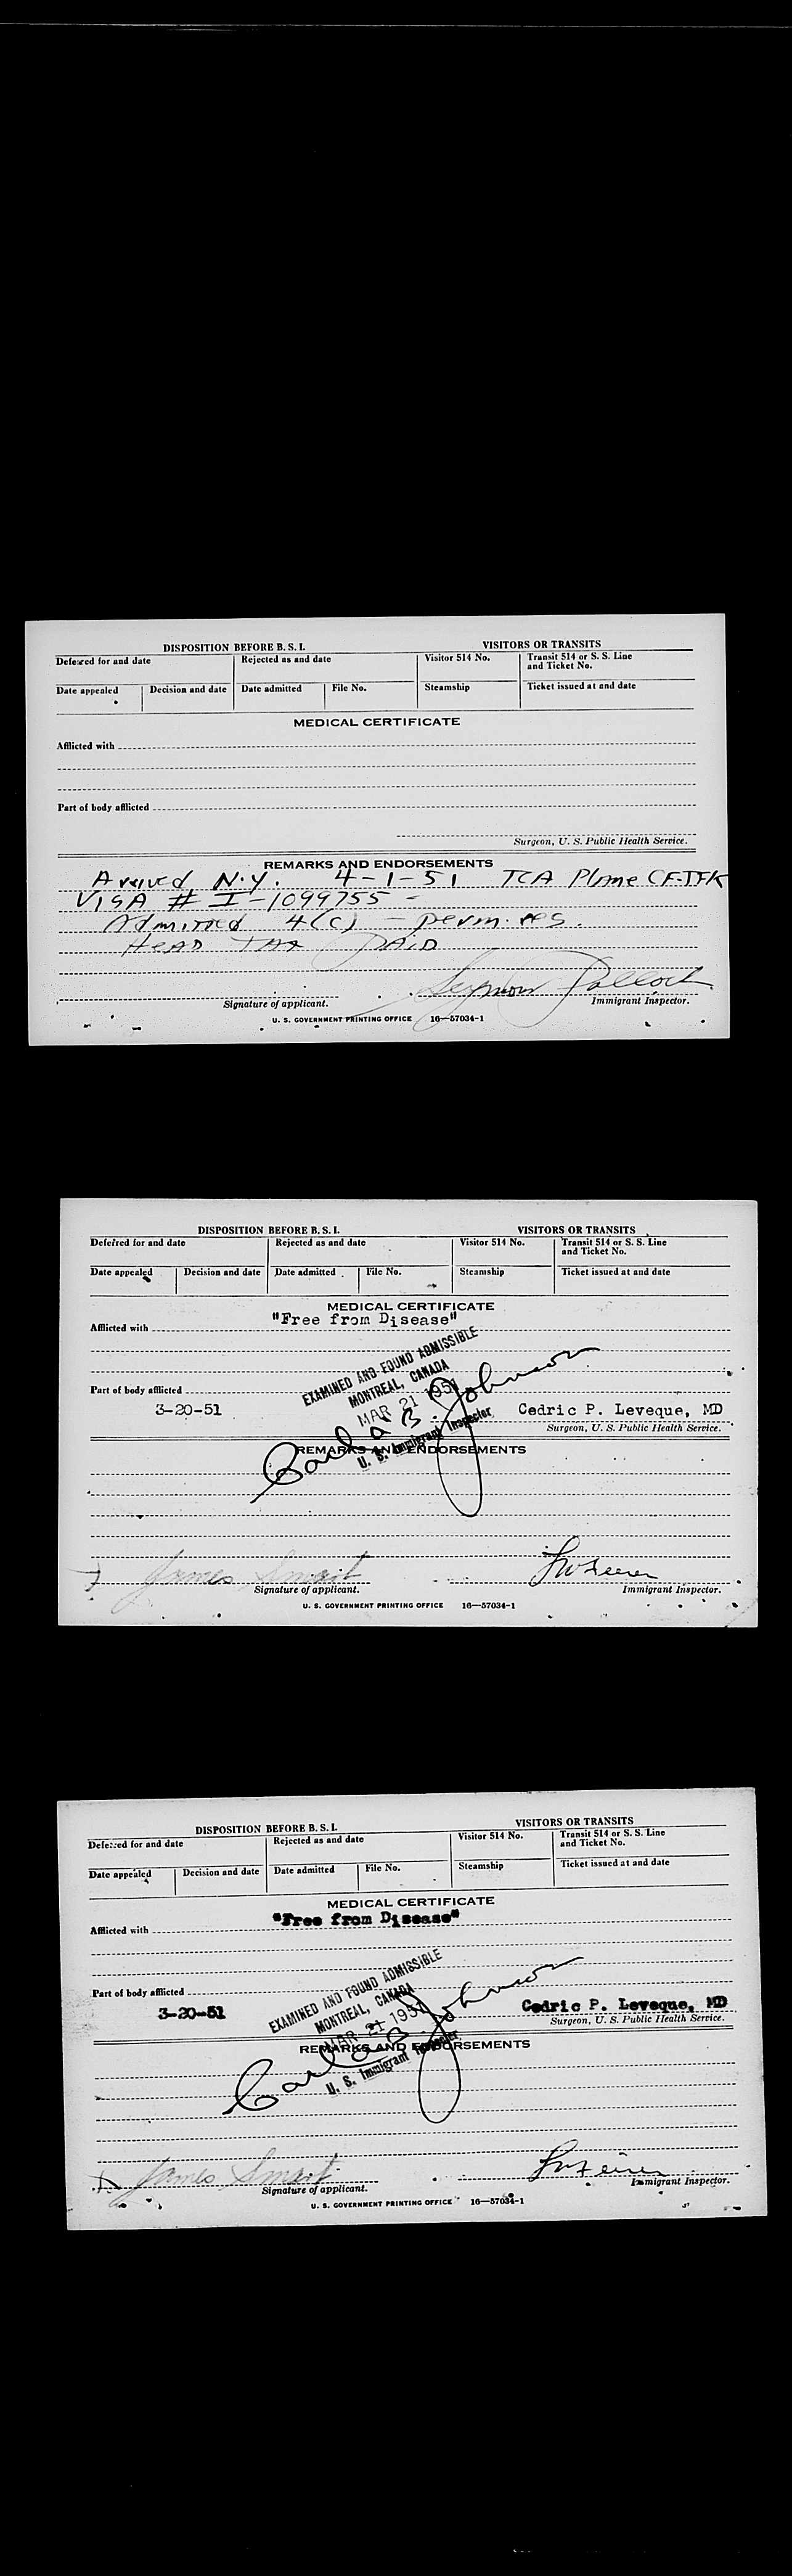 DISPOSITION BEFORE B. S. I. VISITORS OR TRANSITS
Deferred for and date Rejected as and date Visitor 514 No. Transit 514 or S. S. Line and Ticket No.
Date appealed Decision and date Date admitted File No. Steamship Ticket issued at and date
MEDICAL CERTIFICATE
Afflicted with
Part of body afflicted
Surgeon, U. S. Public Health Service.
REMARKS AND ENDORSEMENTS
Arrived N.Y. 4-1-51 TCA Plane CF-TFK
VISA # I-1099755 -
Admitted 4(c) - perm. res.
HEAD TAX PAID
Seymour Pollock
Signature of applicant. Immigrant Inspector.
U. S. GOVERNMENT PRINTING OFFICE 16—57034-1
DISPOSITION BEFORE B. S. I. VISITORS OR TRANSITS
Deferred for and date Rejected as and date Visitor 514 No. Transit 514 or S. S. Line and Ticket No.
Date appealed Decision and date Date admitted File No. Steamship Ticket issued at and date
MEDICAL CERTIFICATE
"Free from Disease"
Afflicted with
EXAMINED AND FOUND ADMISSIBLE
MONTREAL, CANADA
MAR 21 1951
Carl B. Johnson
U. S. Immigrant Inspector
Part of body afflicted
3-20-51 Cedric P. Leveque, MD
Surgeon, U. S. Public Health Service.
REMARKS AND ENDORSEMENTS
James Smart
Signature of applicant. Immigrant Inspector.
U. S. GOVERNMENT PRINTING OFFICE 16—57034-1
DISPOSITION BEFORE B. S. I. VISITORS OR TRANSITS
Deferred for and date Rejected as and date Visitor 514 No. Transit 514 or S. S. Line and Ticket No.
Date appealed Decision and date Date admitted File No. Steamship Ticket issued at and date
MEDICAL CERTIFICATE
"Free from Disease"
Afflicted with
EXAMINED AND FOUND ADMISSIBLE
MONTREAL, CANADA
MAR 21 1951
Carl B. Johnson
U. S. Immigrant Inspector
Part of body afflicted
3-20-51 Cedric P. Leveque, MD
Surgeon, U. S. Public Health Service.
REMARKS AND ENDORSEMENTS
James Smart
Signature of applicant. Immigrant Inspector.
U. S. GOVERNMENT PRINTING OFFICE 16—57034-1